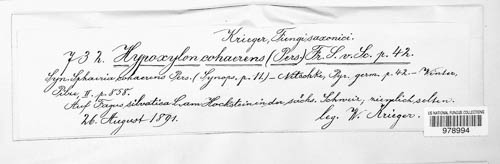 Krieger, Fungi saxonici.
732. Hypoxylon cohaerens (Pers) Fr. S. v. Sc. p. 42.
Syn. Sphaeria cohaerens Pers. (Synops. p. 11) – Nitschke, Pyr. germ. p. 42. – Winter,
Pilze, II. p. 858.
Auf Fagus silvatica L. am Hockstein in der sächs. Schweiz, ziemlich selten.
26. August 1891. leg. W. Krieger.
US NATIONAL FUNGUS COLLECTIONS
978994